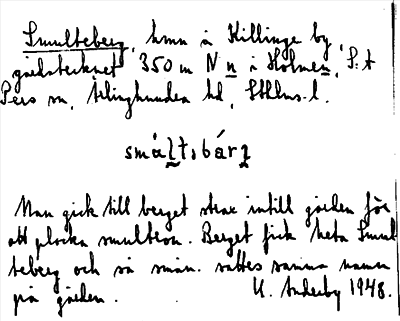 Smulteberg, hmn å Killinge by,
gårdstecknet 350 m N n i Holmen, S:t
Pers sn, Ärlinghundra hd, Sthlms l.
smål̰t,bárʒ
Man gick till berget strax intill gården för
att plocka smultron. Berget fick heta Smul
teberg och så små. sattes samma namn
på gården.
U. Anderby 1948.